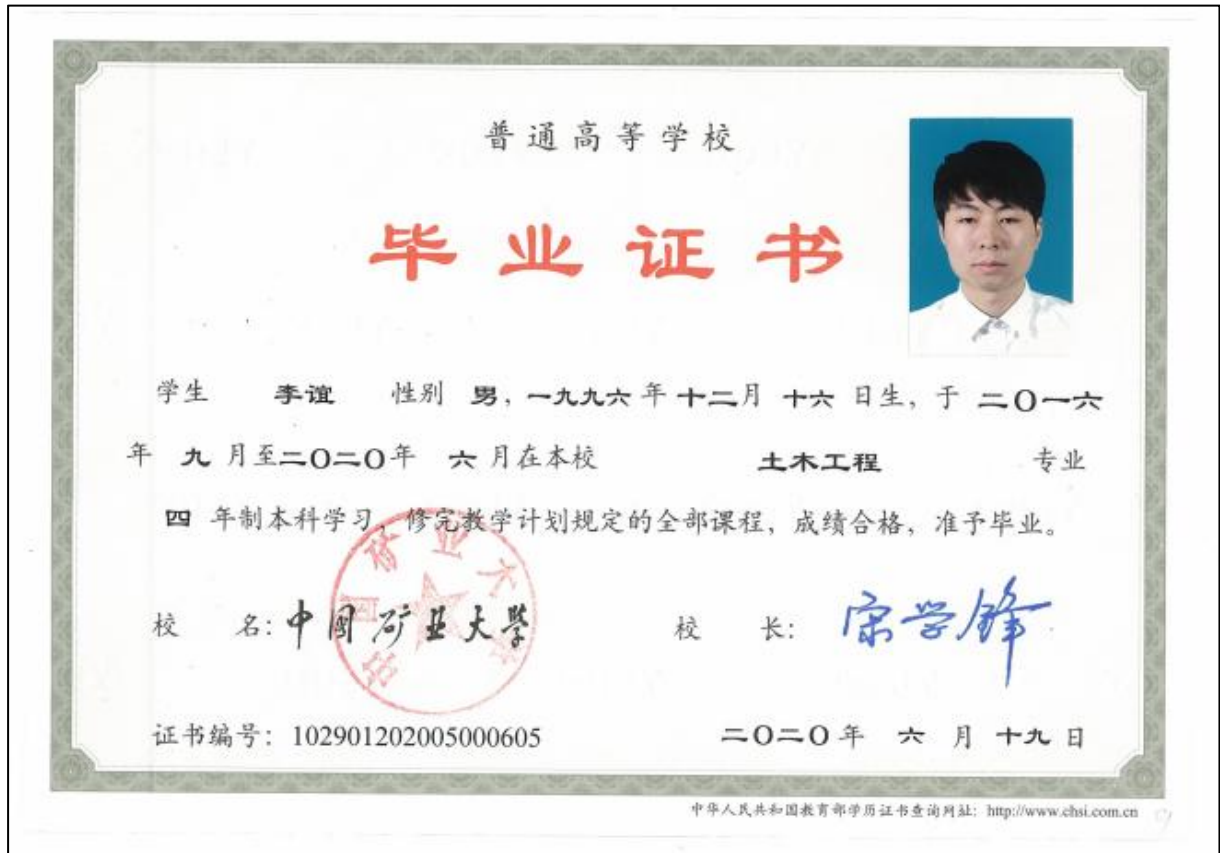 普通高等学校
毕业证书
学生 李谊 性别 男，一九九六年十二月 十六 日生，于 二〇一六
年 九 月至二〇二〇年 六 月在本校 土木工程 专业
四 年制本科学习，修完教学计划规定的全部课程，成绩合格，准予毕业。
中国矿业大学
校 名：中國矿业大學 校 长：宋学锋
证书编号：102901202005000605 二〇二〇年 六 月 十九 日
中华人民共和国教育部学历证书查询网址：http://www.chsi.com.cn